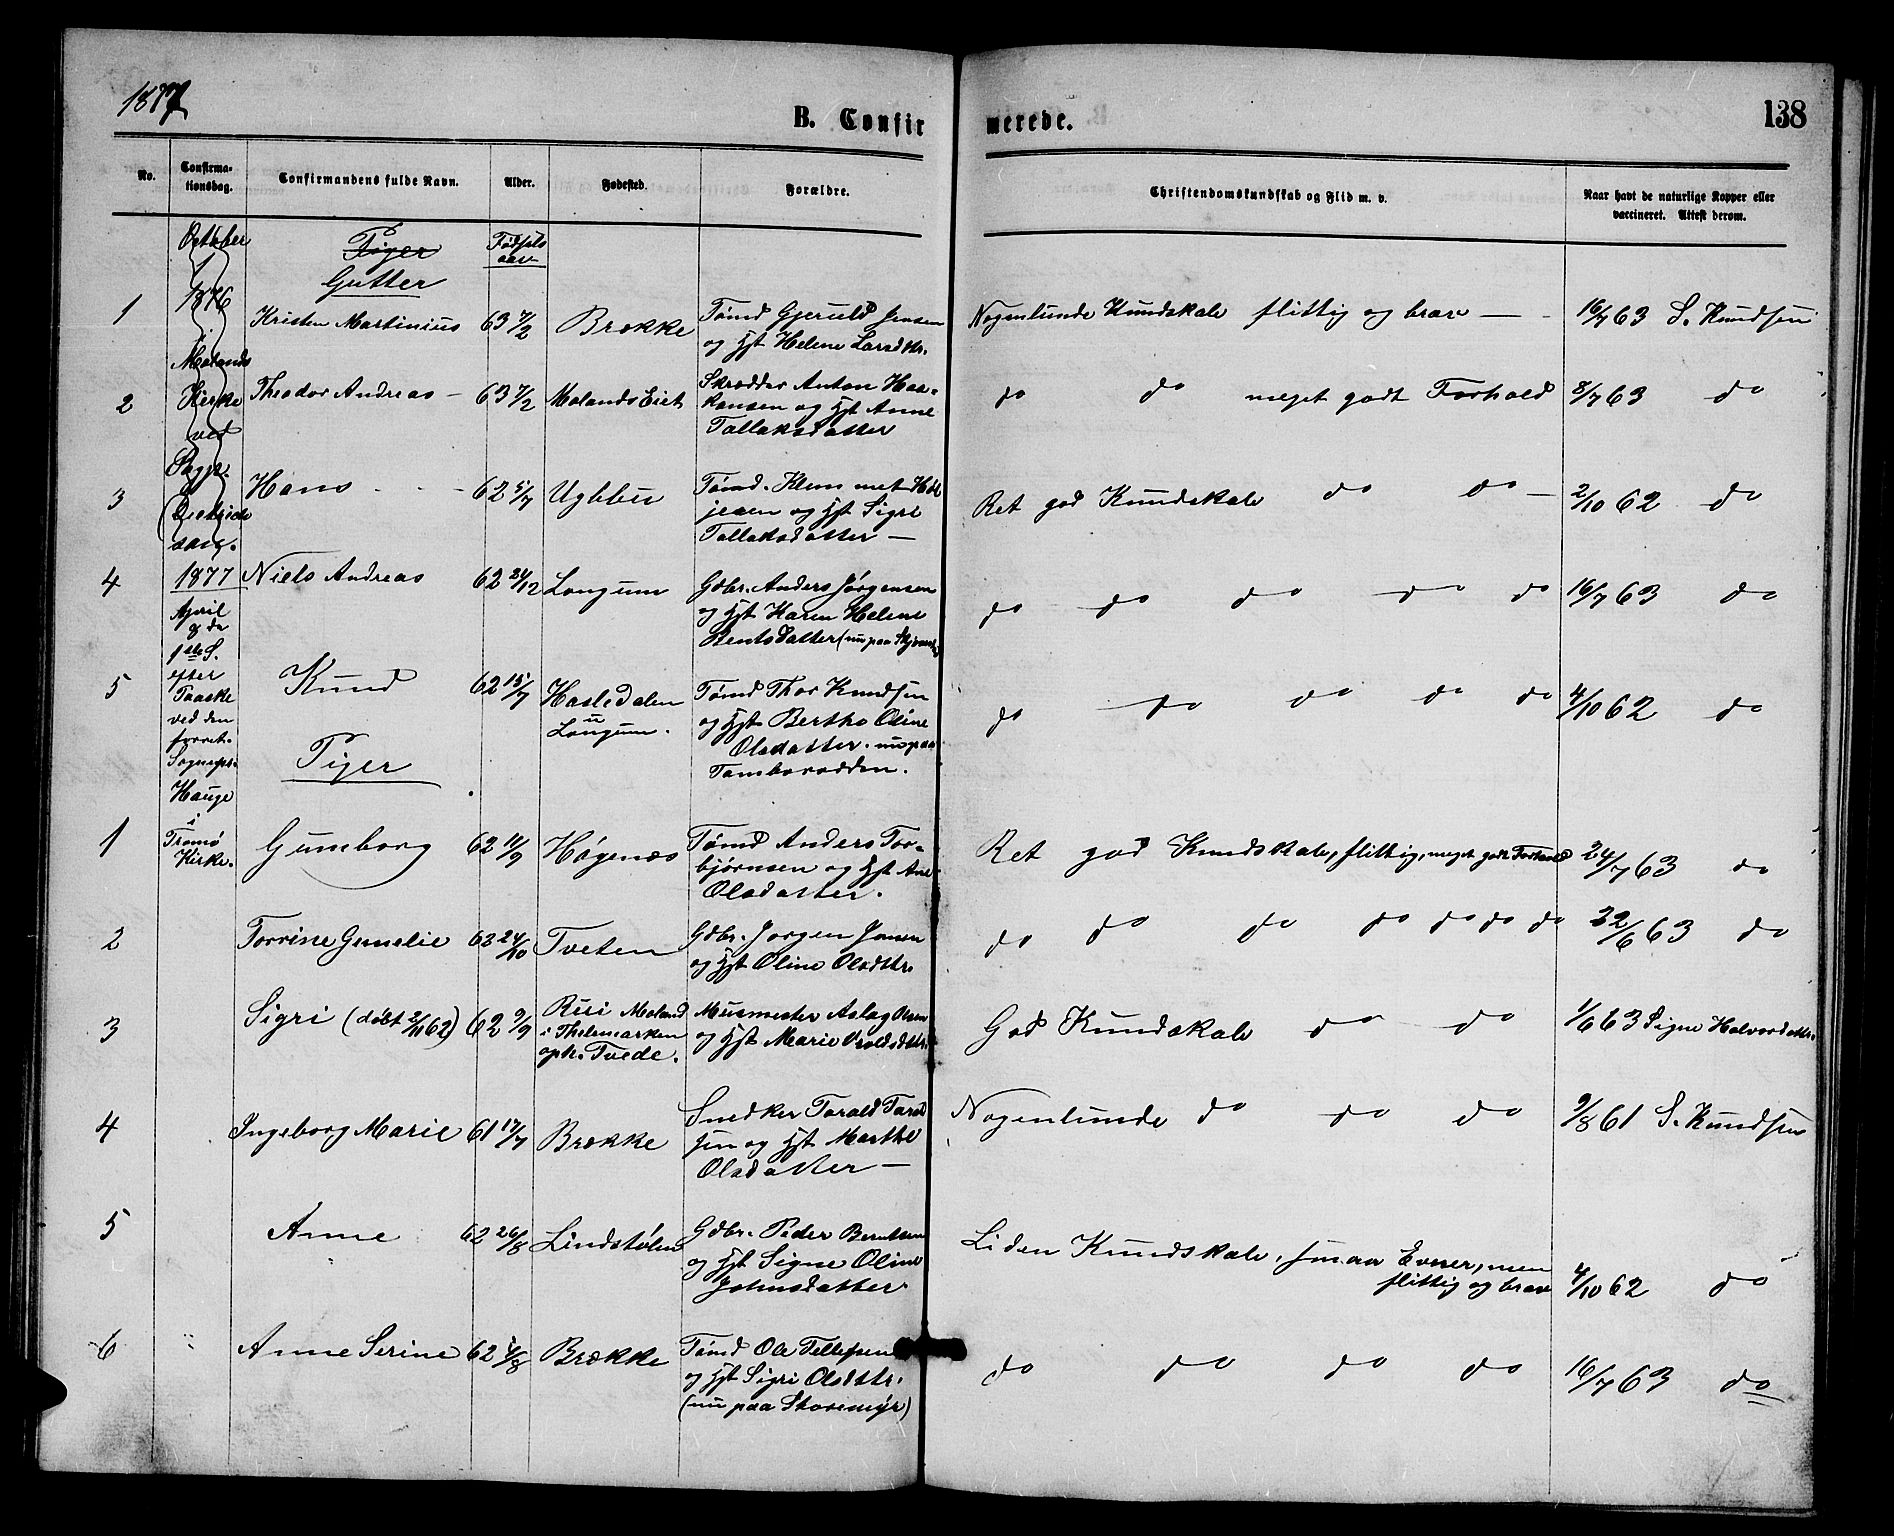 1877
B. Confirmerede.
138
No.
Confirmationsdag.
Confirmandens fulde Navn.
Alder.
Fødested.
Forældre.
Christendomskundskab og Flid m. v.
Naar havt de naturlige Kopper eller vaccineret. Attest derom.
October
1876
i
Molands
Kirke
ved
1877
April
8 da
1ste S.
efter
Paaske
ved den
forret.
Sognepr.
Hauge
i
Tromø
Kirke.
Piger
Gutter
Fødsels
aar
1 Kristen Martinius 63 7/2 Brække Tømd Gjeruld Jensen
og Hst Helene Larsdtr.
Nogenlunde Kundskab flittig og brav — 16/7 63 S. Knudsen
2 Theodor Andreas — 63 7/2 Molands Eiet Skrædder Anton Haa-
konsen og Hst Anne
Tallaksdatter
do do meget godt Forhold 8/7 63 do
3 Hans 62 5/7 Ugleбu Tømd. Klem
og Hst Sigri
Tallaksdatter —
Ret god Kundskab do do — 2/10 62 do
4 Niels Andreas 62 24/12 Longum Gdbr. Anders Jørgensen
og Hst Karen Helene
Bentsdatter (nu paa
do do do do do 16/7 63 do
5 Knud 62 15/7 Hasledalen
u
Longum.
Tømd Thor Knudsen
og Hst Berthe Oline
Olsdatter. nu paa
Tomborodden.
do do do do do 4/10 62 do
Piger
1 Gunborg 62 11/9 Høgenæs Tømd Anders Tor-
bjørnsen og Hst Ane
Olsdatter.
Ret god Kundskab, flittig, meget godt Forhold 24/7 63 do
2 Torrine Gunelie 62 24/10 Tveten Gdbr. Jørgen Jensen
og Hst Oline Olsdtr.
do do do do do do do 22/6 63 do
3 Sigri (døbt 2/11 62) 62 9/9 Rui Moland
i Thelemarken
oph. Tvede.
Murmester Aslag Olsen
og Hst Marie
God Kundskab do do 1/6 63 Signe Halvorsdattr.
4 Ingeborg Marie 61 17/7 Brække Snedker Tarald Tarald
sen og Hst Marthe
Olsdatter —
Nogenlunde do do do 9/8 61 S. Knudsen
5 Anne 62 26/8 Lindstølen Gdbr. Peder Berntsen
og Hst Signe Oline
Johnsdatter
Liden Kundskab, smaa Evner, men
flittig og brav 4/10 62 do
6 Anne Serine 62 5/8 Brække Tømd Ole Tellefsen
og Hst Sigri Olsdtr.
(nu paa Storemyr)
do do do do 16/7 63 do